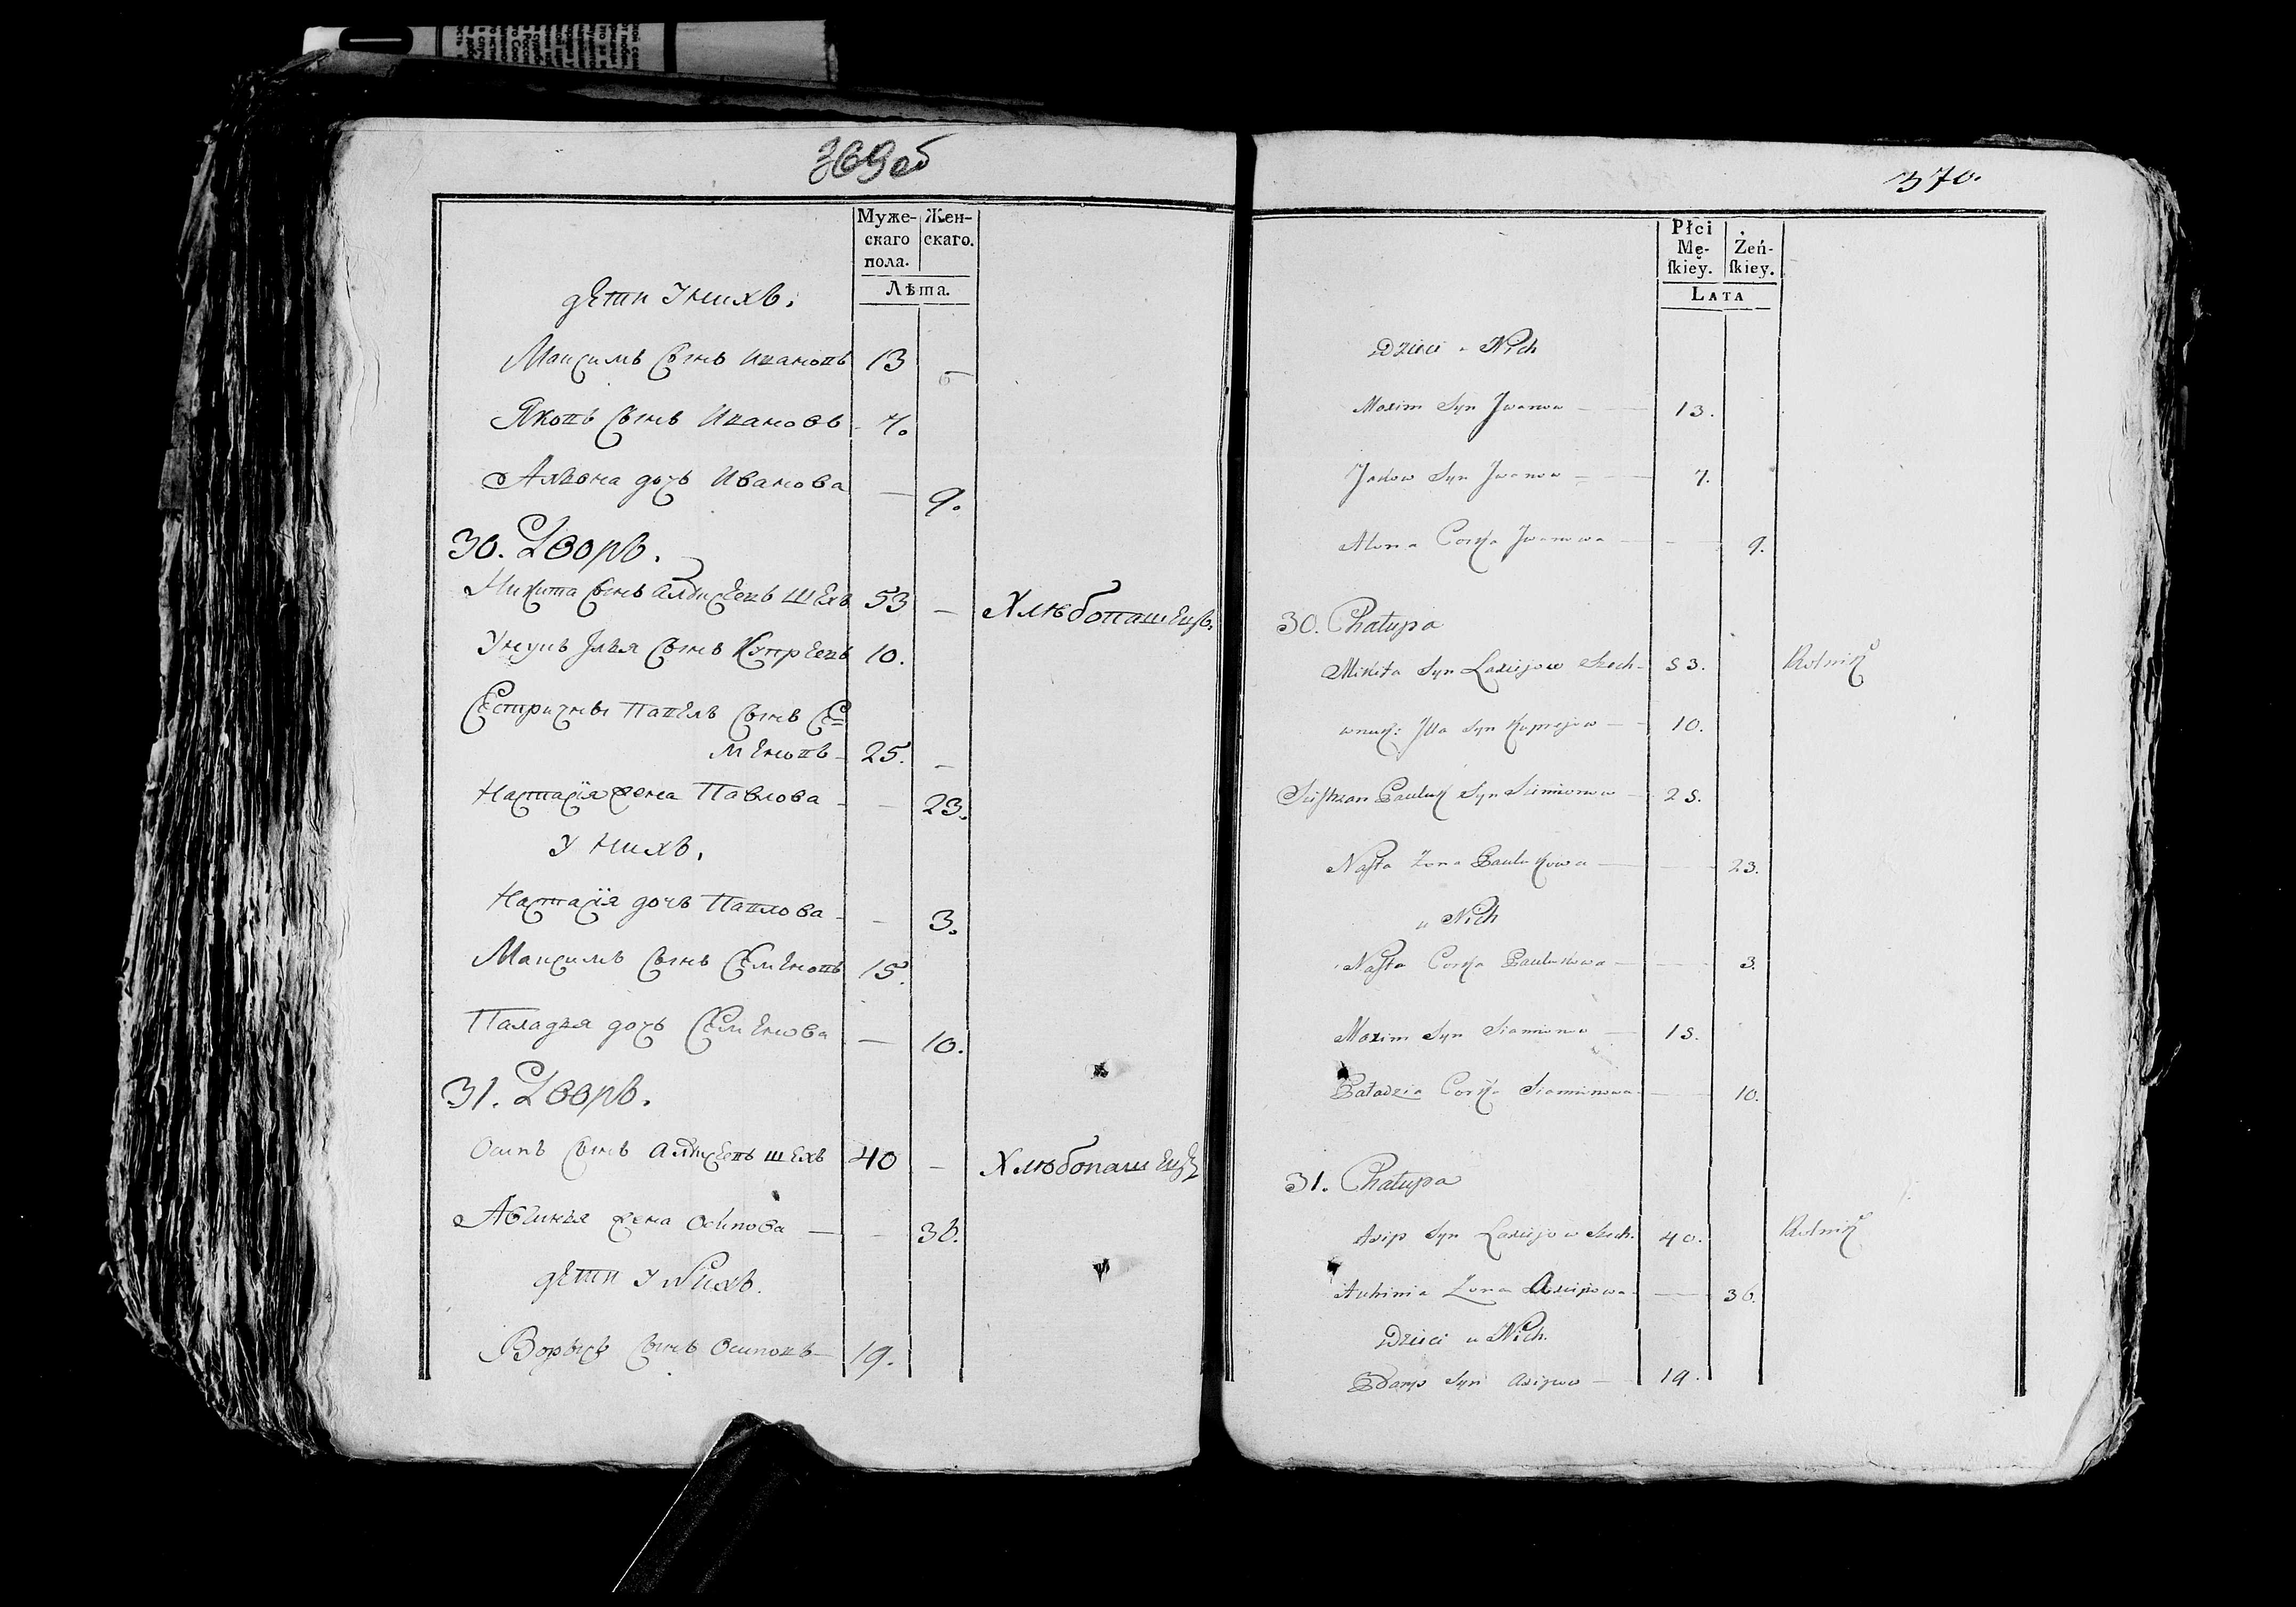 369об
Муже- Жен-
скаго скаго.
пола.
Лѣта.
дети У нихъ.
Максимъ Сынъ Ивановъ 13
Яковъ Сынъ Ивановъ 7.
Алѣона дочь Иванова — 9.
30. Дворъ.
Никита Сынъ Шехъ 53 — Хлѣбопашецъ.
Унукъ Илья Сынъ Купреевъ 10.
Сестричны Павелъ Сынъ Се=
меновъ 25. —
Настасія жена Павлова — 23.
У нихъ.
Настасія дочь Павлова — 3.
Максимъ Сынъ Семеновъ 15.
Паладья дочь Семенова — 10.
31. Дворъ.
Осипъ Сынъ Шехъ 40 — Хлѣбопашецъ
жена Осипова — 36.
дети У нихъ.
Сынъ Осиповъ 19.
370.
Płci Żeń-
Mę- ſkiey.
ſkiey.
LATA
Dzieci u Nich
Maxim Syn Jwanow — 13.
Jakow Syn Jwanow — 7.
Alona Corka Jwanowa — 9.
30. Chałupa
Mikita Syn Szech 53. Rolnik
wnuk: Jlla Syn Kuprejow — 10.
Pauluk Syn Siemionow — 25.
Naſta Zona Paulukowa — 23.
u Nich
Naſta Corka Paulukowa — 3.
Maxim Syn Siamionow — 15.
Paładzia Corka Siamionowa — 10.
31. Chałupa
Asip Syn Szech. 40. Rolnik
Auhinia Zona Asipowa — 36.
Dzieci u Nich.
Syn Asipow — 19.